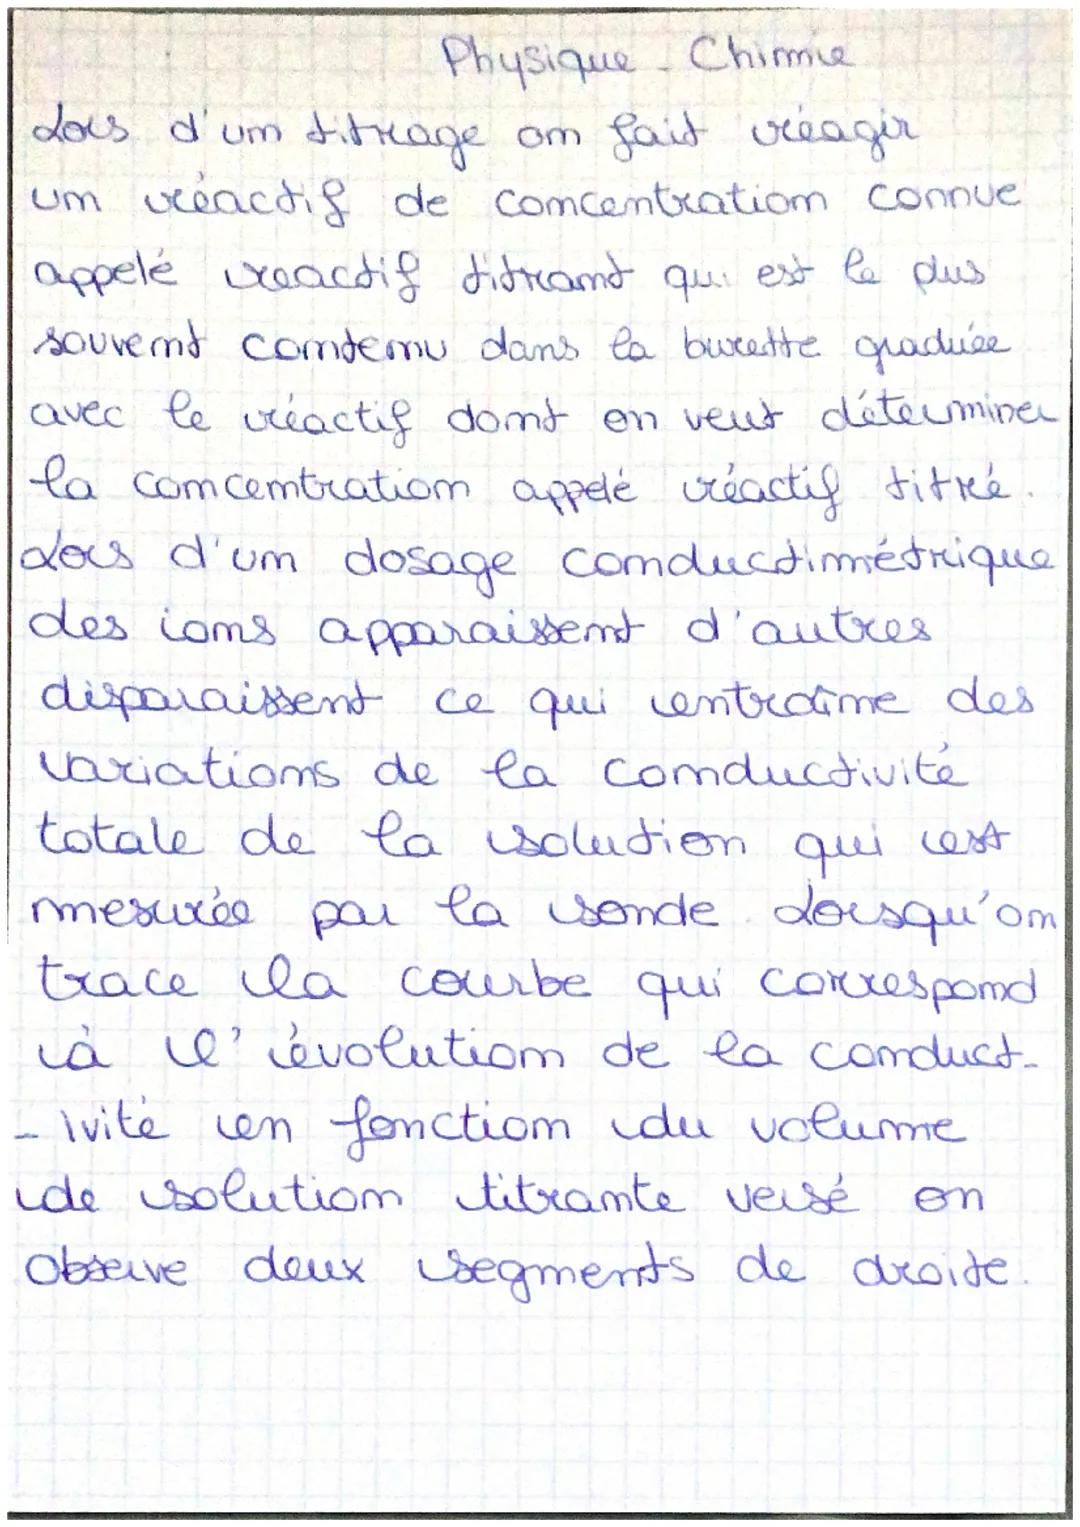 Physique - Chimie
Lors d'un titrage on fait réagir
un réactif de concentration connue
appelé reactif titrant qui est le plus
souvent contenu dans la burette graduée
avec le réactif dont on veut déterminer
la concentration appelé réactif titré.
Lors d'un dosage conductimétrique
des ions apparaissent d'autres
disparaissent ce qui entraîne des
variations de la conductivité
totale de la solution qui est
mesurée par la sonde. Lorsqu'on
trace la courbe qui correspond
à l'évolution de la conduct-
- ivité en fonction du volume
de solution titrante versé on
observe deux segments de droite.